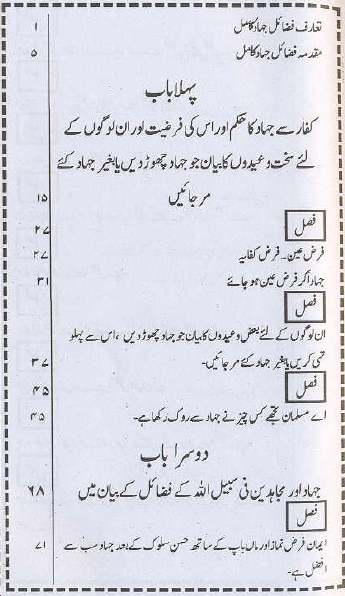 تعارف فضائل جہاد کامل ۱
مقدمہ فضائل جہاد کامل ۵
پہلا باب
کفار سے جہاد کا حکم اور اس کی فرضیت اور ان لوگوں کے
لئے سخت وعیدوں کا بیان جو جہاد چھوڑ دیں یا بغیر جہاد کئے
مر جائیں ۱۵
فصل ۲۷
فرض عین۔ فرض کفایہ ۲۷
جہاد اگر فرض عین ہو جائے ۳۱
فصل
ان لوگوں کے لئے بعض وعیدوں کا بیان جو جہاد چھوڑ دیں ، اس سے پہلو
تہی کریں یا بغیر جہاد کئے مر جائیں۔ ۳۷
فصل ۴۵
اے مسلمان تجھے کس چیز نے جہاد سے روک رکھا ہے۔ ۴۵
دوسرا باب
جہاد اور مجاہدین فی سبیل اللہ کے فضائل کے بیان میں ۶۸
فصل
ایمان فرض نماز اور ماں باپ کے ساتھ حسن سلوک کے بعد جہاد سب سے ۷۱
افضل ہے۔